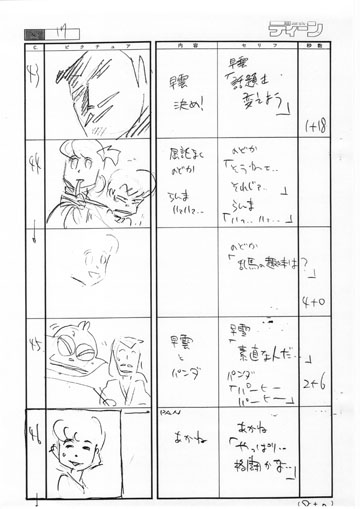 17
ディーン
C
ピクチュア
内容
セリフ
秒数
43
早雲
決め!
早雲
「話題を
変えよう」
1+18
44
のどか
らんま
のどか
「そうねェ…
それじゃ…」
らんま
のどか
「乱馬の趣味は?」
4+0
45
早雲
と
パンダ
早雲
「素直なんだ…」
パンダ
「パーヒー
パーヒー」
2+6
46
PAN
あかね
あかね
「やっぱり…
格闘かな…」